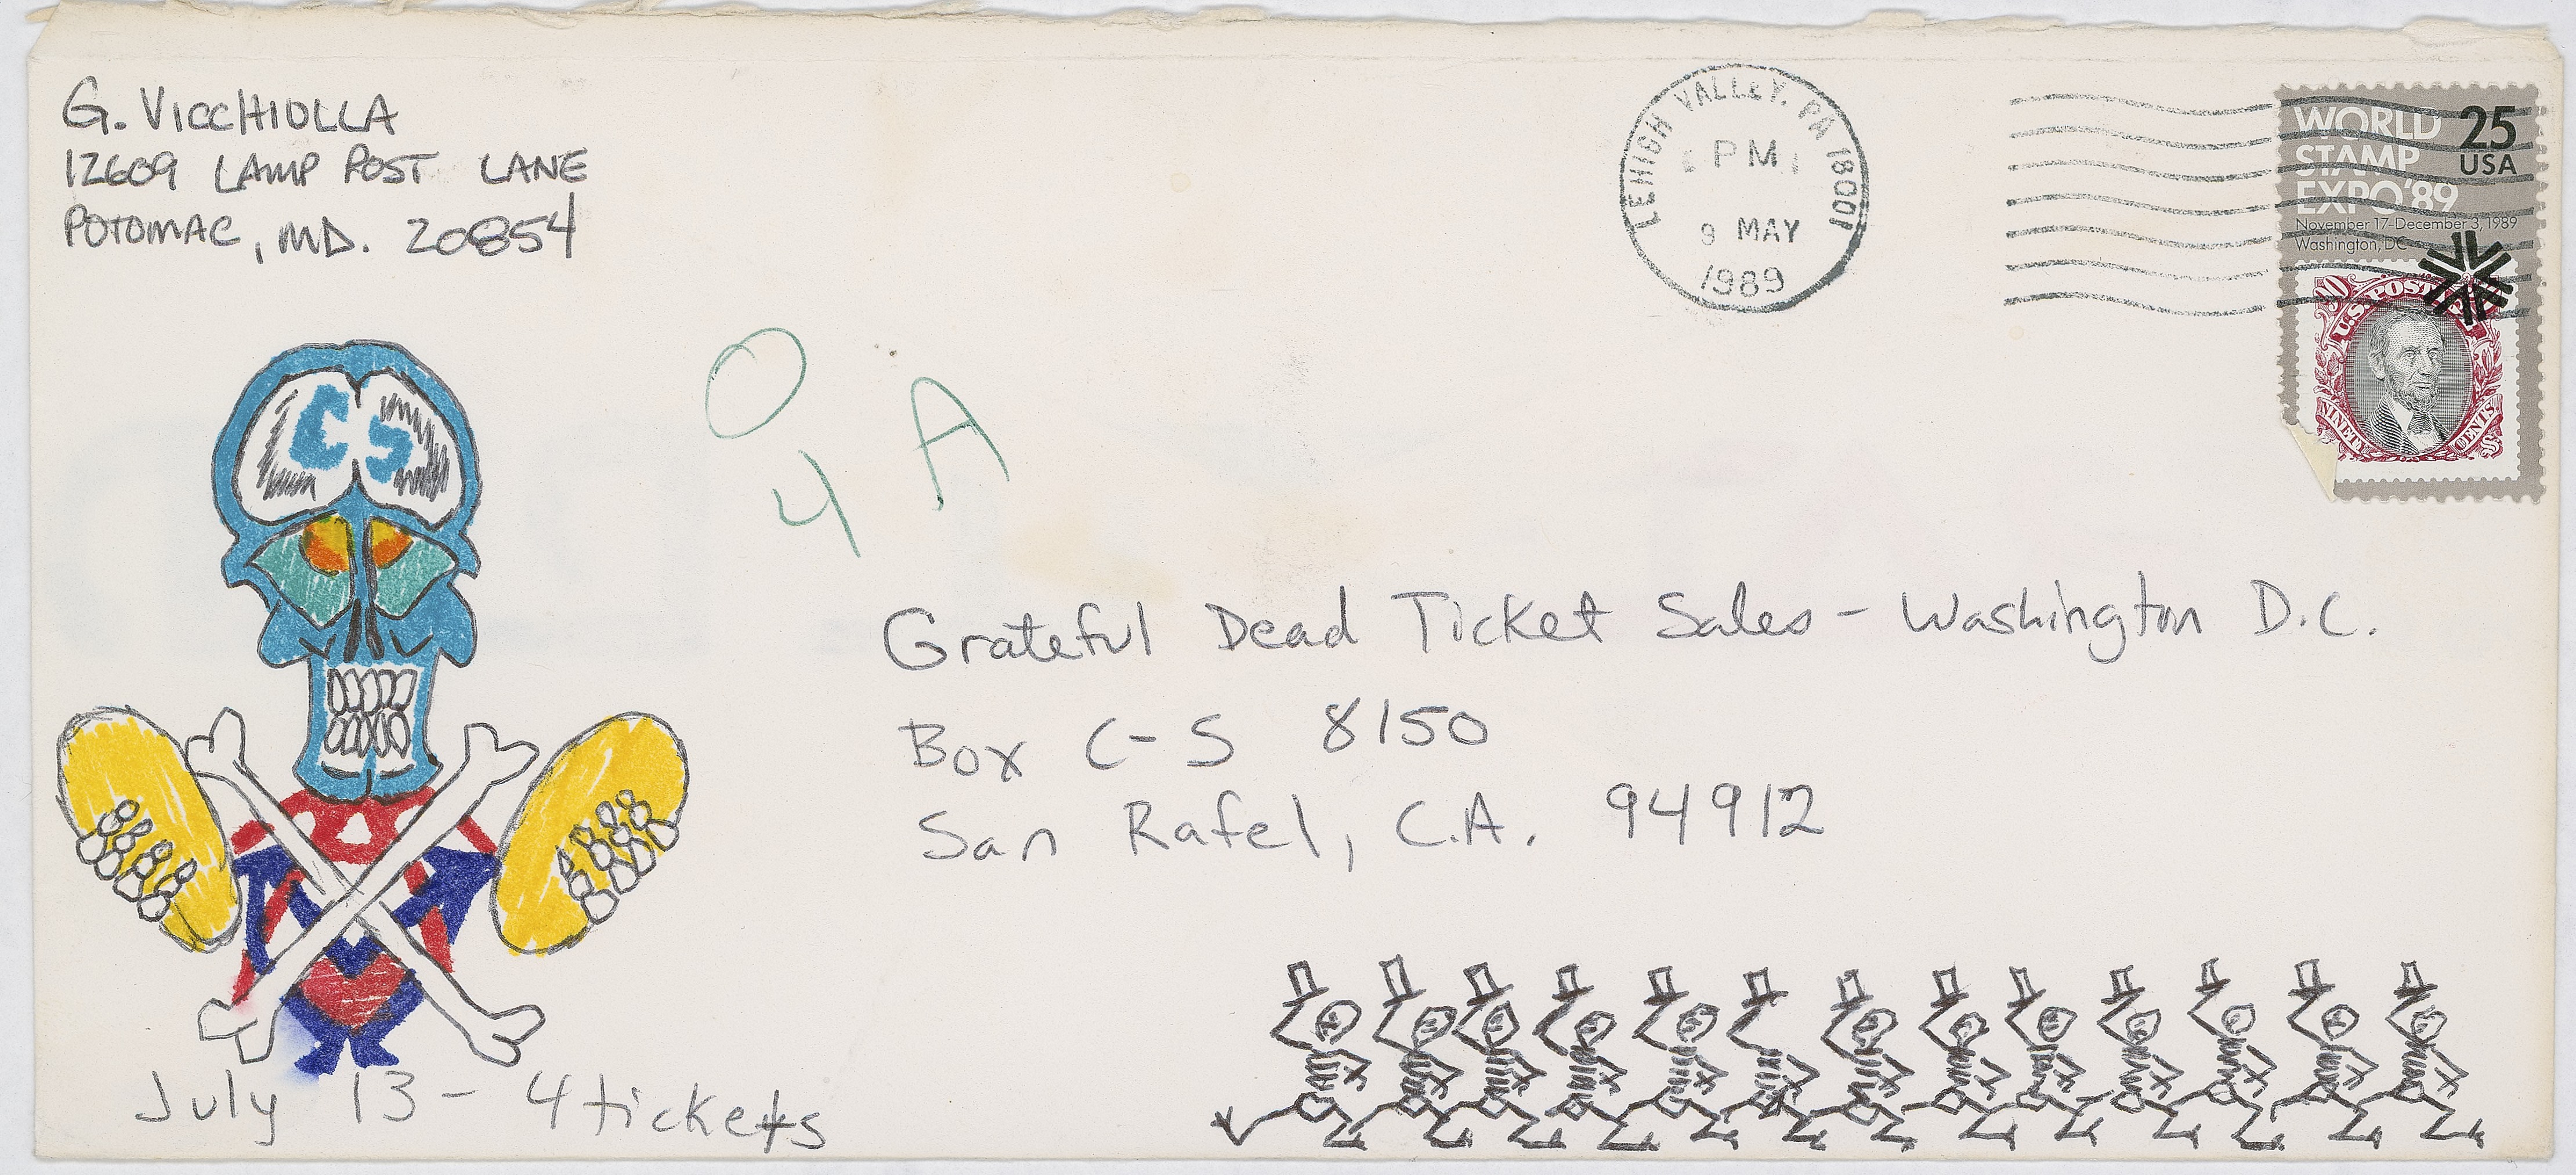 G. VICCHIOLLA
12609 LAMP POST LANE
POTOMAC, MD. 20854
LEHIGH VALLEY, PA 18001
PM
9 MAY
1989
WORLD
STAMP
EXPO'89
November 17-December 3, 1989
Washington, DC
25
USA
90
U.S. POSTAGE
NINETY CENTS
C S
O
4 A
Grateful Dead Ticket Sales - Washington D.C.
Box C-S 8150
San Rafel, C.A. 94912
July 13 - 4 tickets